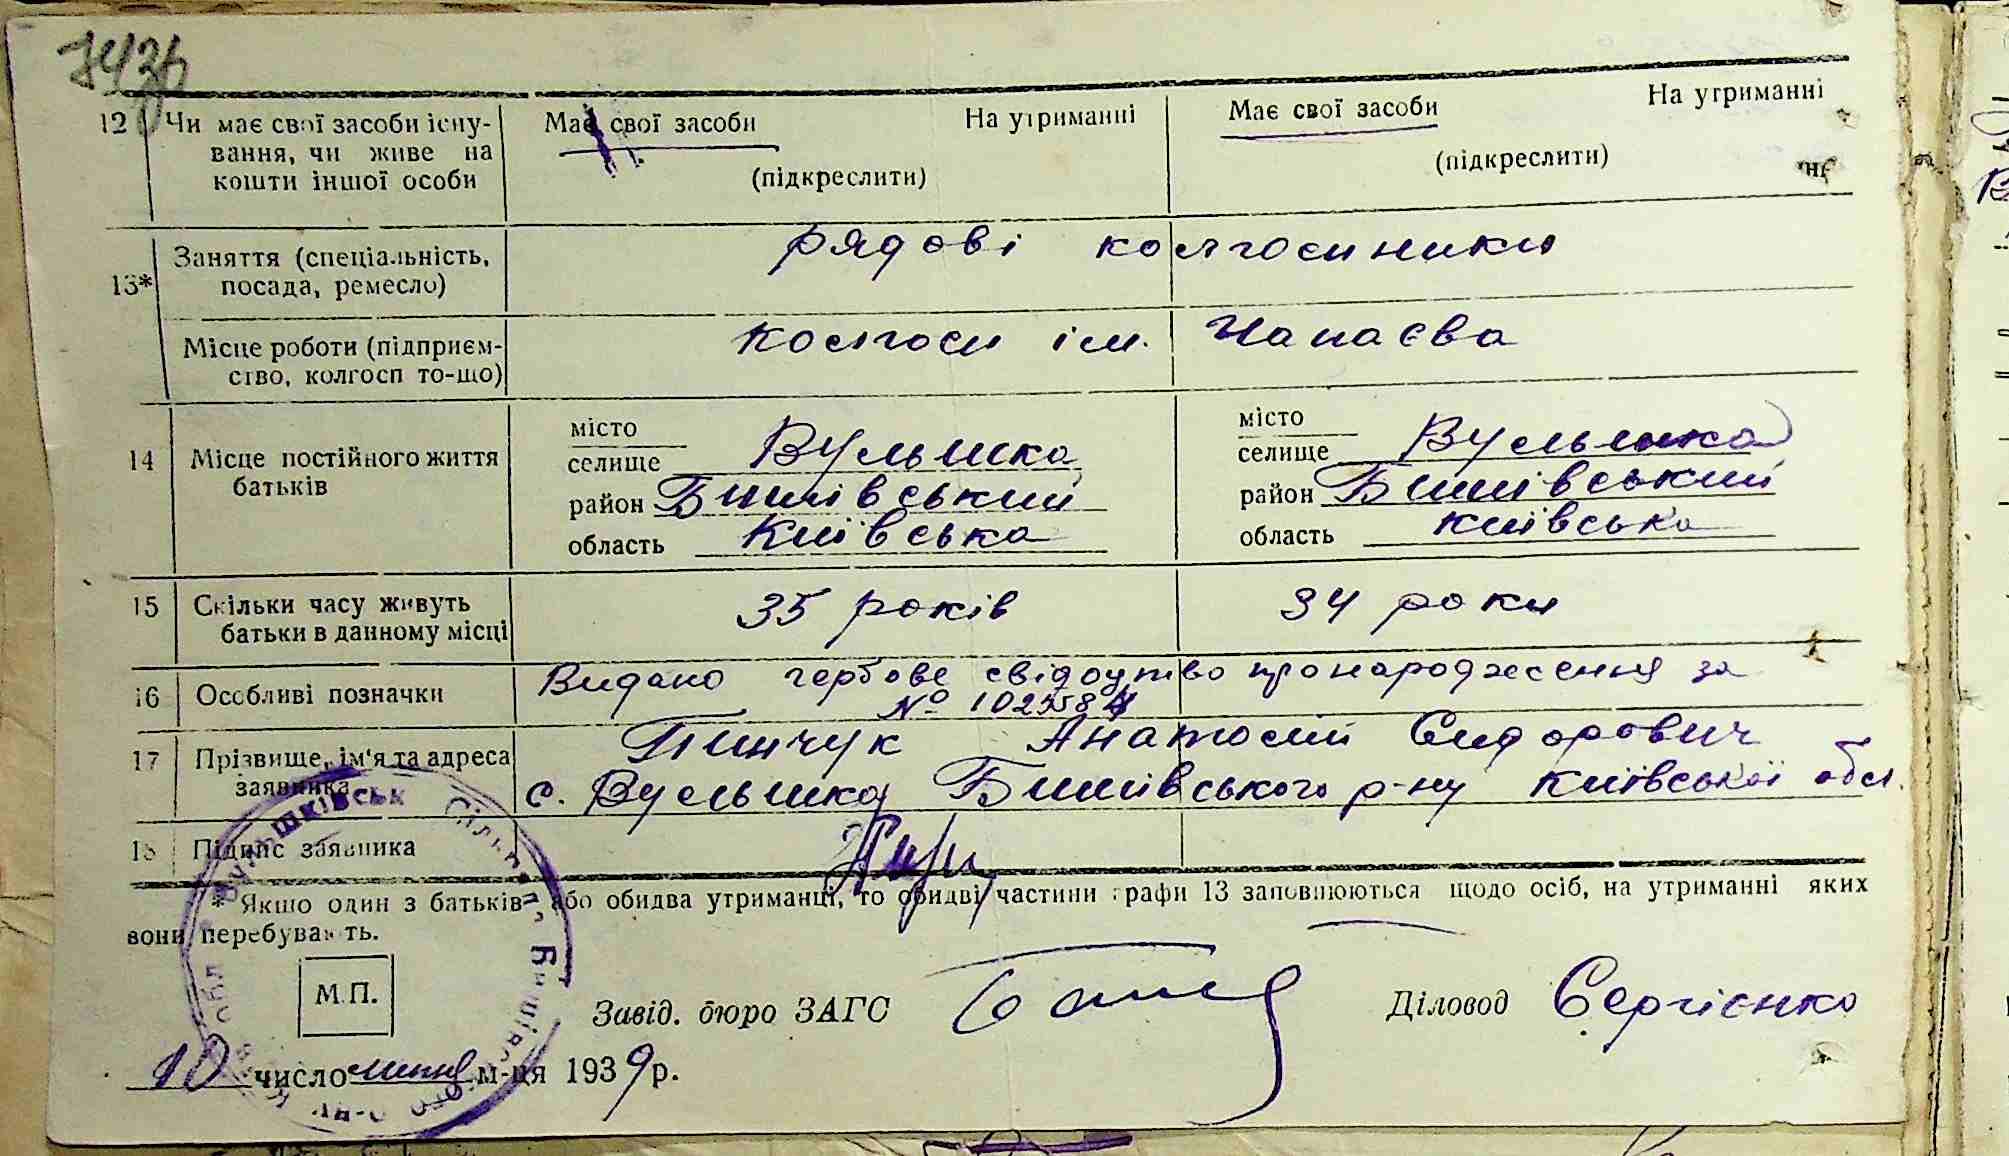 12 Чи має свої засоби існу- Має свої засоби На утриманні Має свої засоби На утриманні
вання, чи живе на (підкреслити) (підкреслити)
кошти іншої особи
13* Заняття (спеціальність, рядові колгоспники
посада, ремесло)
Місце роботи (підприєм- колгосп ім. Чапаєва
ство, колгосп то-що)
14 Місце постійного життя місто місто
батьків селище Вульшка селище Вульшка
район Бишівський район Бишівський
область Київська область Київська
15 Скільки часу живуть 35 років 34 роки
батьки в данному місці
16 Особливі позначки Видано гербове свідоцтво про народження за
№
17 Прізвище, ім'я та адреса Пинчук Анатолій Сидорович
заявника с. Вульшка Бишівського р-ну Київської обл.
18 Підпис заявника
* Якщо один з батьків або обидва утриманці, то обидві частини графи 13 заповнюються щодо осіб, на утриманні яких
вони перебувають.
М.П.
Завід. бюро ЗАГС Діловод Сергієнко
10 число липня м-ця 1939 р.